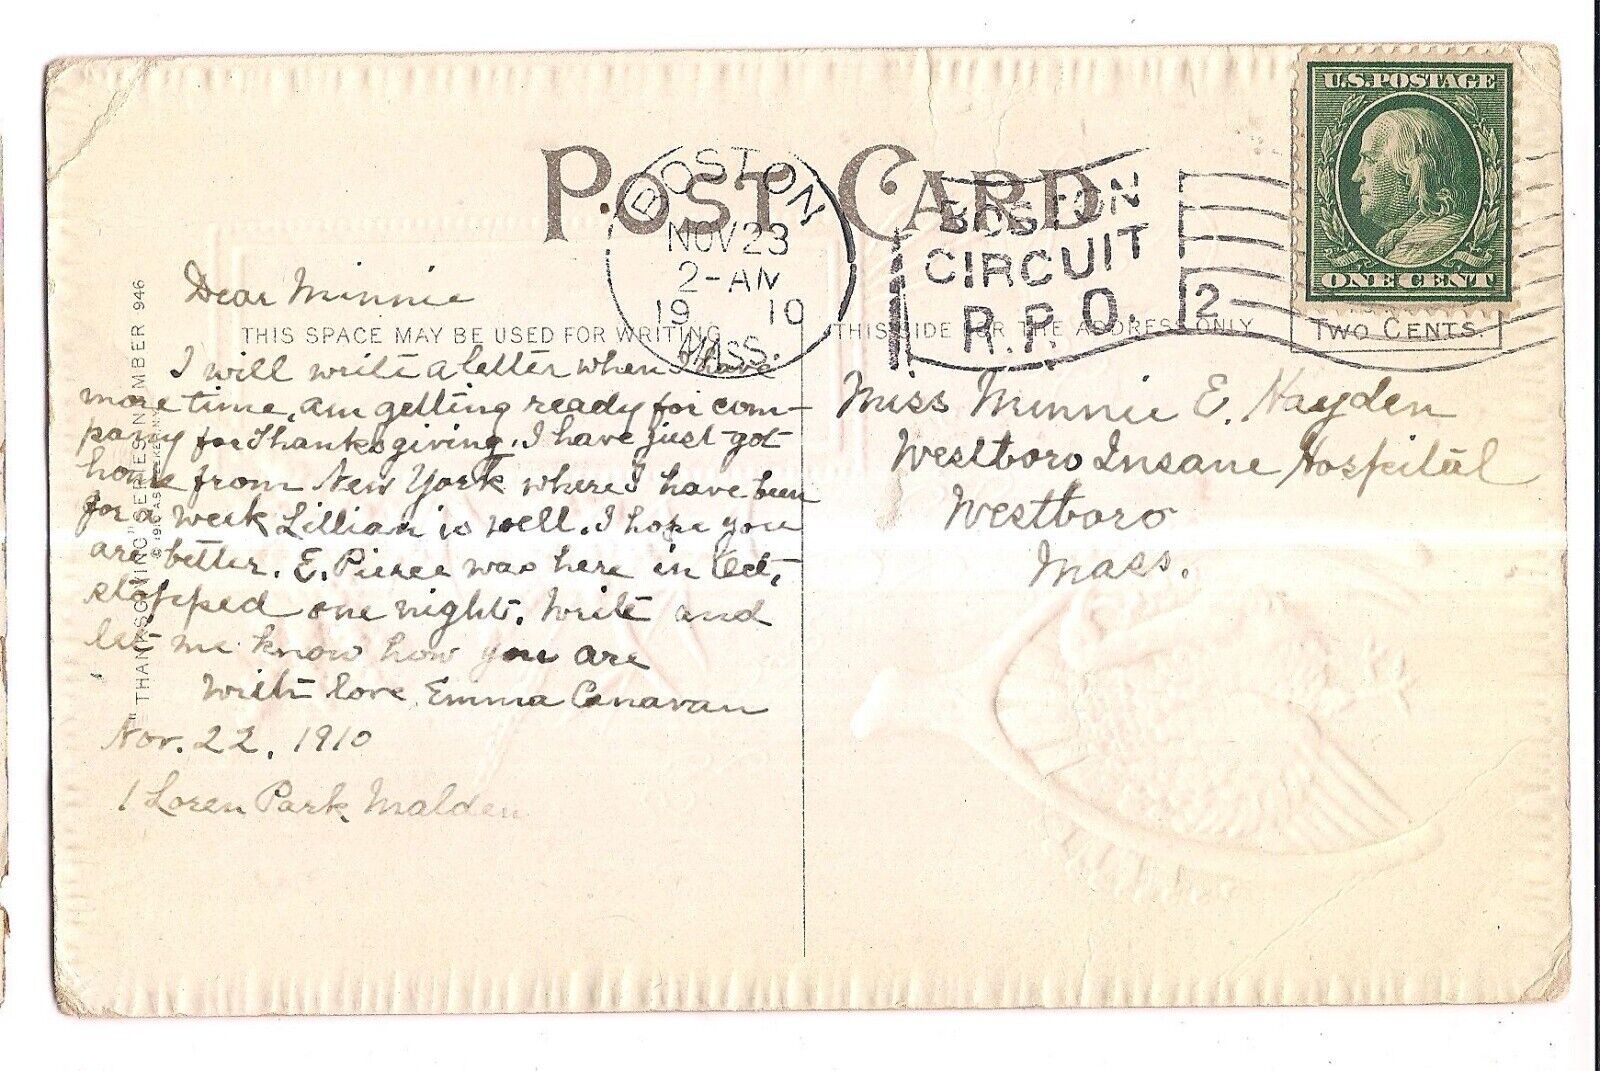 POST CARD
BOSTON
NOV 23
2-AM
19 10
MASS.
BOSTON
CIRCUIT
R.P.O.
2
U.S.POSTAGE
ONE CENT
TWO CENTS.
THIS SPACE MAY BE USED FOR WRITING
THIS SIDE FOR THE ADDRESS ONLY
"THANKSGIVING" SERIES NUMBER 946
Dear Minnie
I will write a letter when I have
more time, am getting ready for com-
pany for Thanksgiving. I have just got
home from New York where I have been
for a week Lillian is well. I hope you
are better. E. Pierce was here in Oct,
stopped one night. Write and
let me know how you are
With love Emma Canavan
Nov. 22, 1910
1 Loren Park Malden
Miss Minnie E. Hayden
Westboro Insane Hospital
Westboro
Mass.